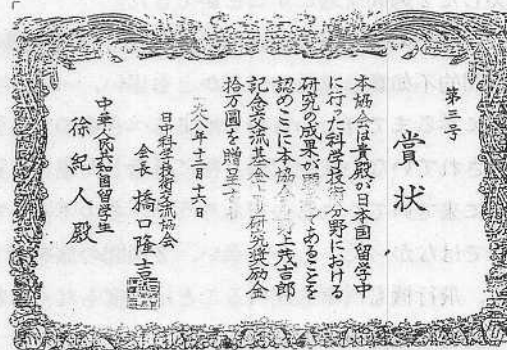 第三号
賞状
本協会は貴殿が日本国留学中
に行った科学技術分野における
研究の成果が顕著であることを
認めここに本協会野上茂吉郎
記念交流基金より研究奨励金
拾万圓を贈呈する
一九八八年十二月十六日
日中科学技術交流協会
会長 橋口隆吉
中華人民共和国留学生
徐紀人殿